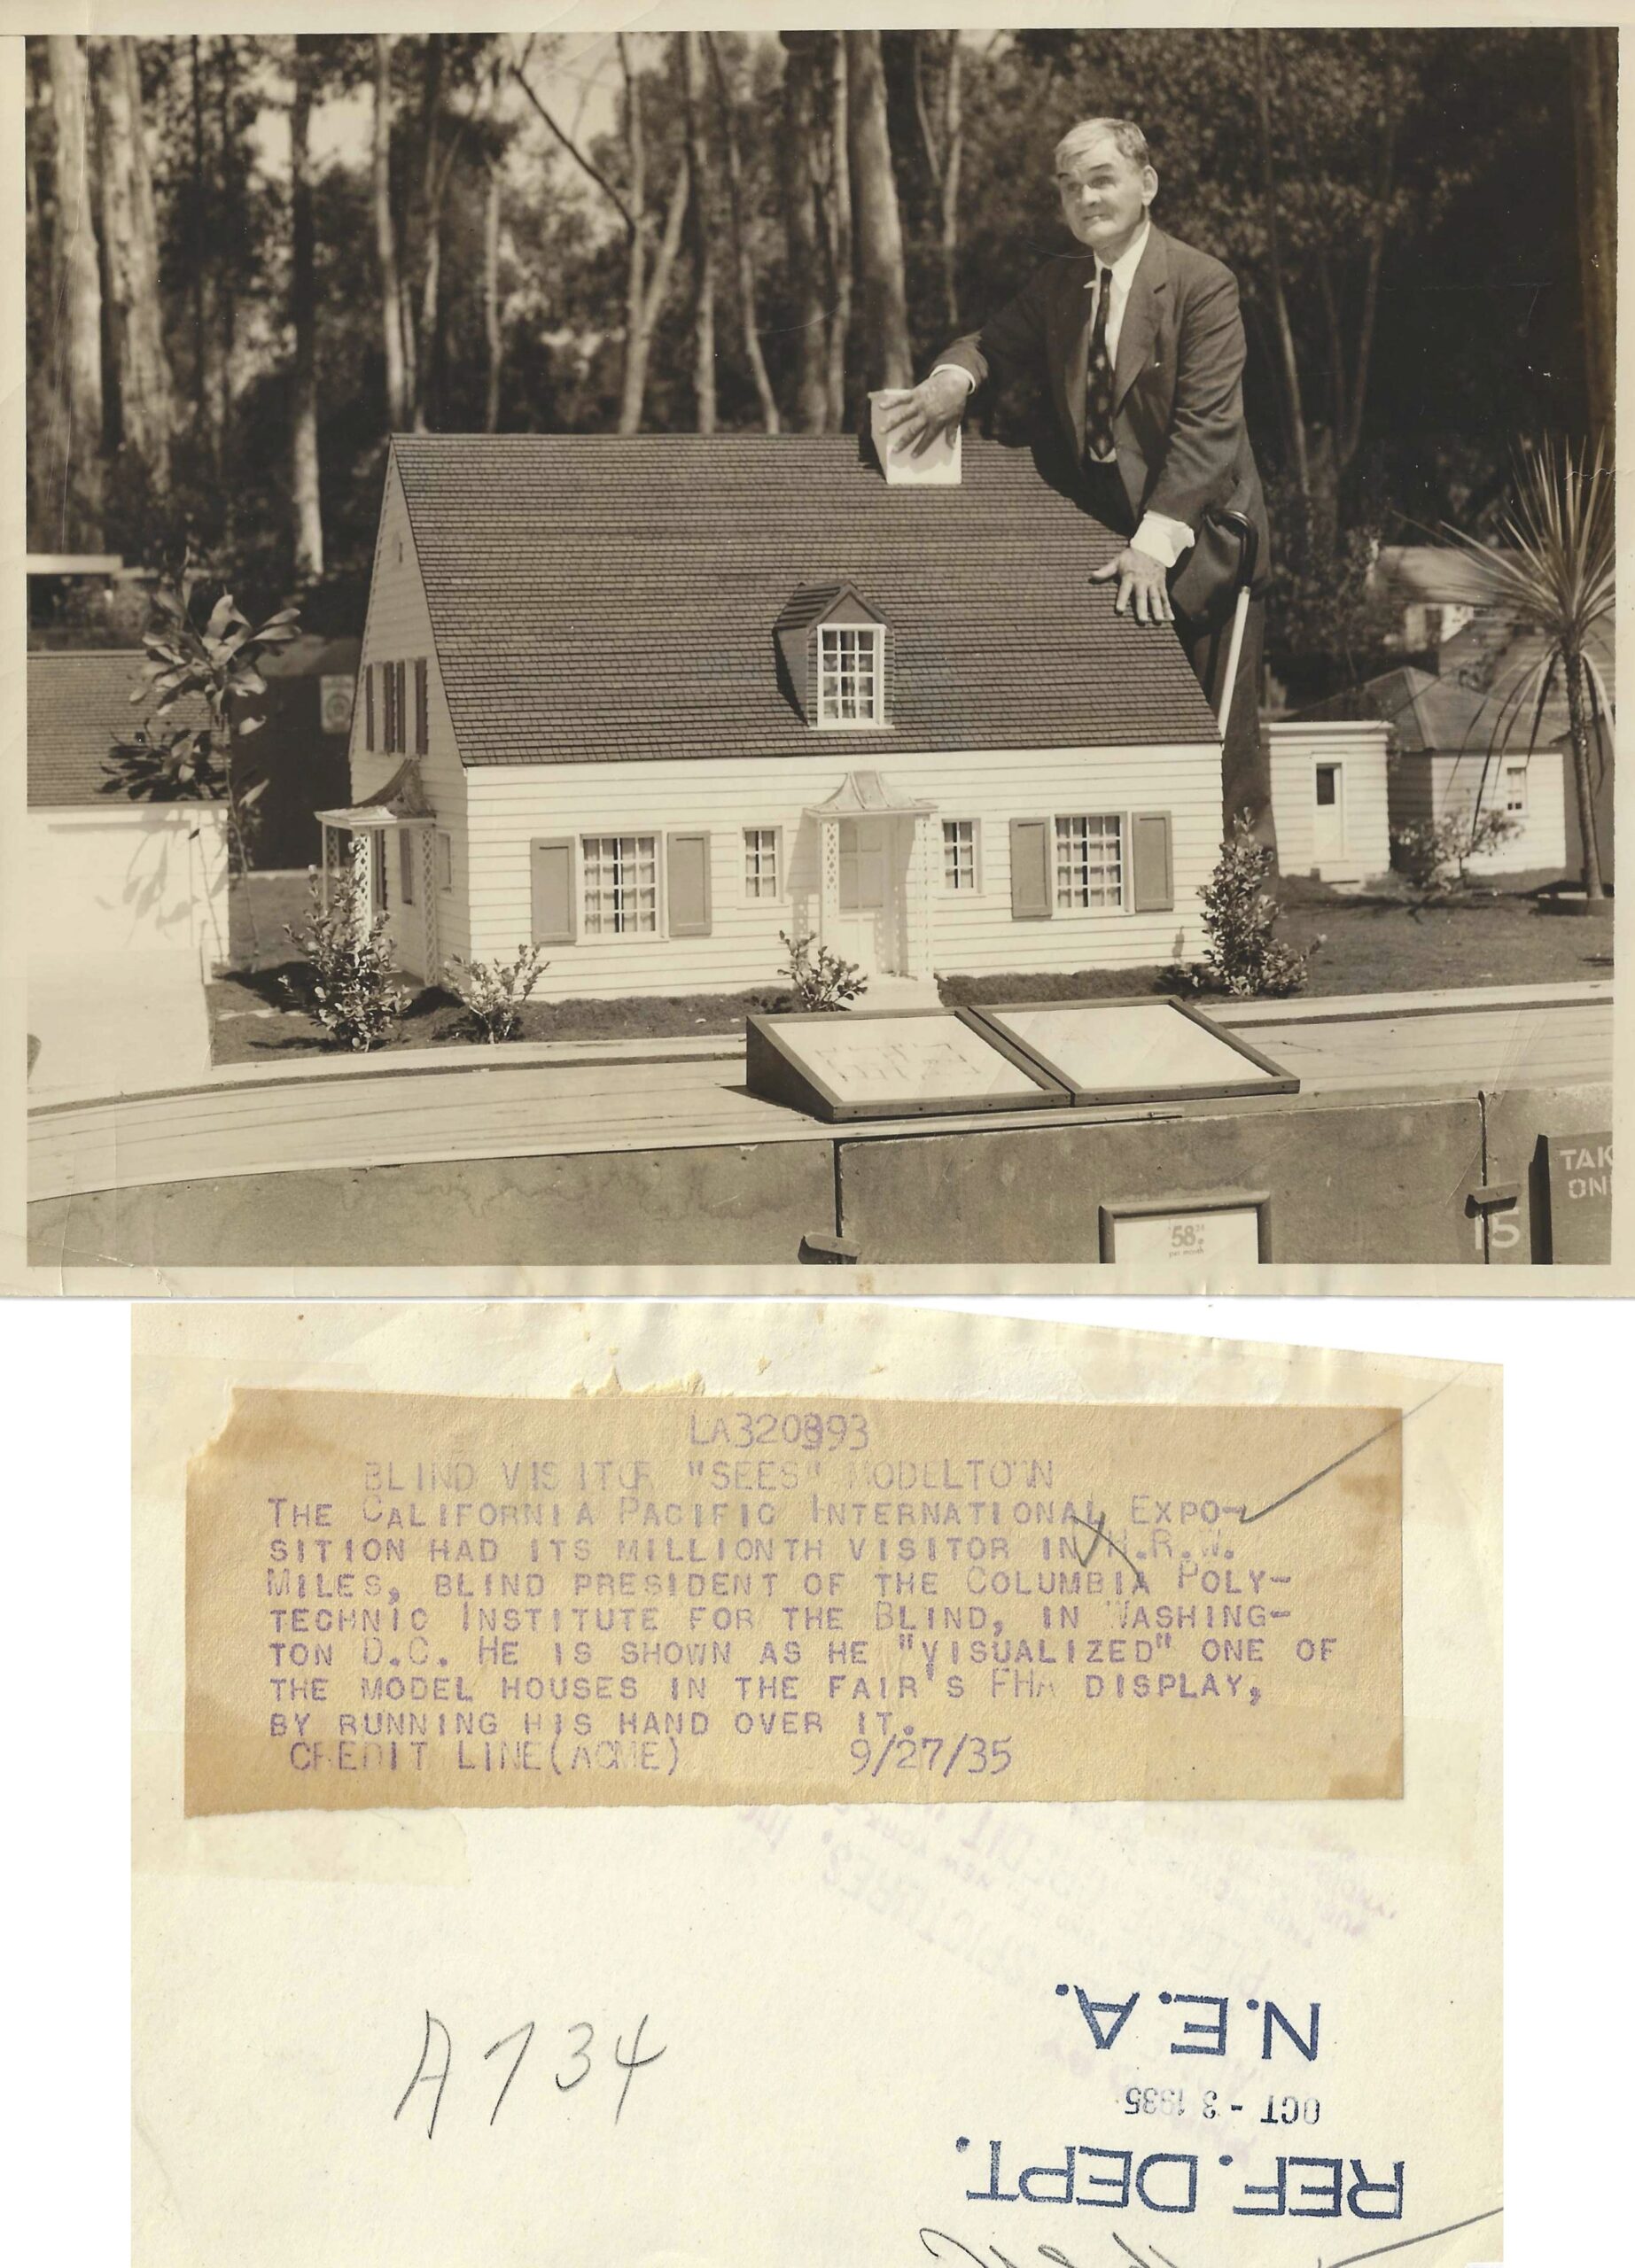 TAK
ON
15
58
per month
LA320893
BLIND VISITOR "SEES" MODELTOWN
THE CALIFORNIA PACIFIC INTERNATIONAL EXPO-
SITION HAD ITS MILLIONTH VISITOR IN H.R.W.
MILES, BLIND PRESIDENT OF THE COLUMBIA POLY-
TECHNIC INSTITUTE FOR THE BLIND, IN WASHING-
TON D.C. HE IS SHOWN AS HE "VISUALIZED" ONE OF
THE MODEL HOUSES IN THE FAIR'S FHA DISPLAY,
BY RUNNING HIS HAND OVER IT.
CREDIT LINE(ACME) 9/27/35
A734
REF. DEPT.
OCT - 3 1935
N.E.A.